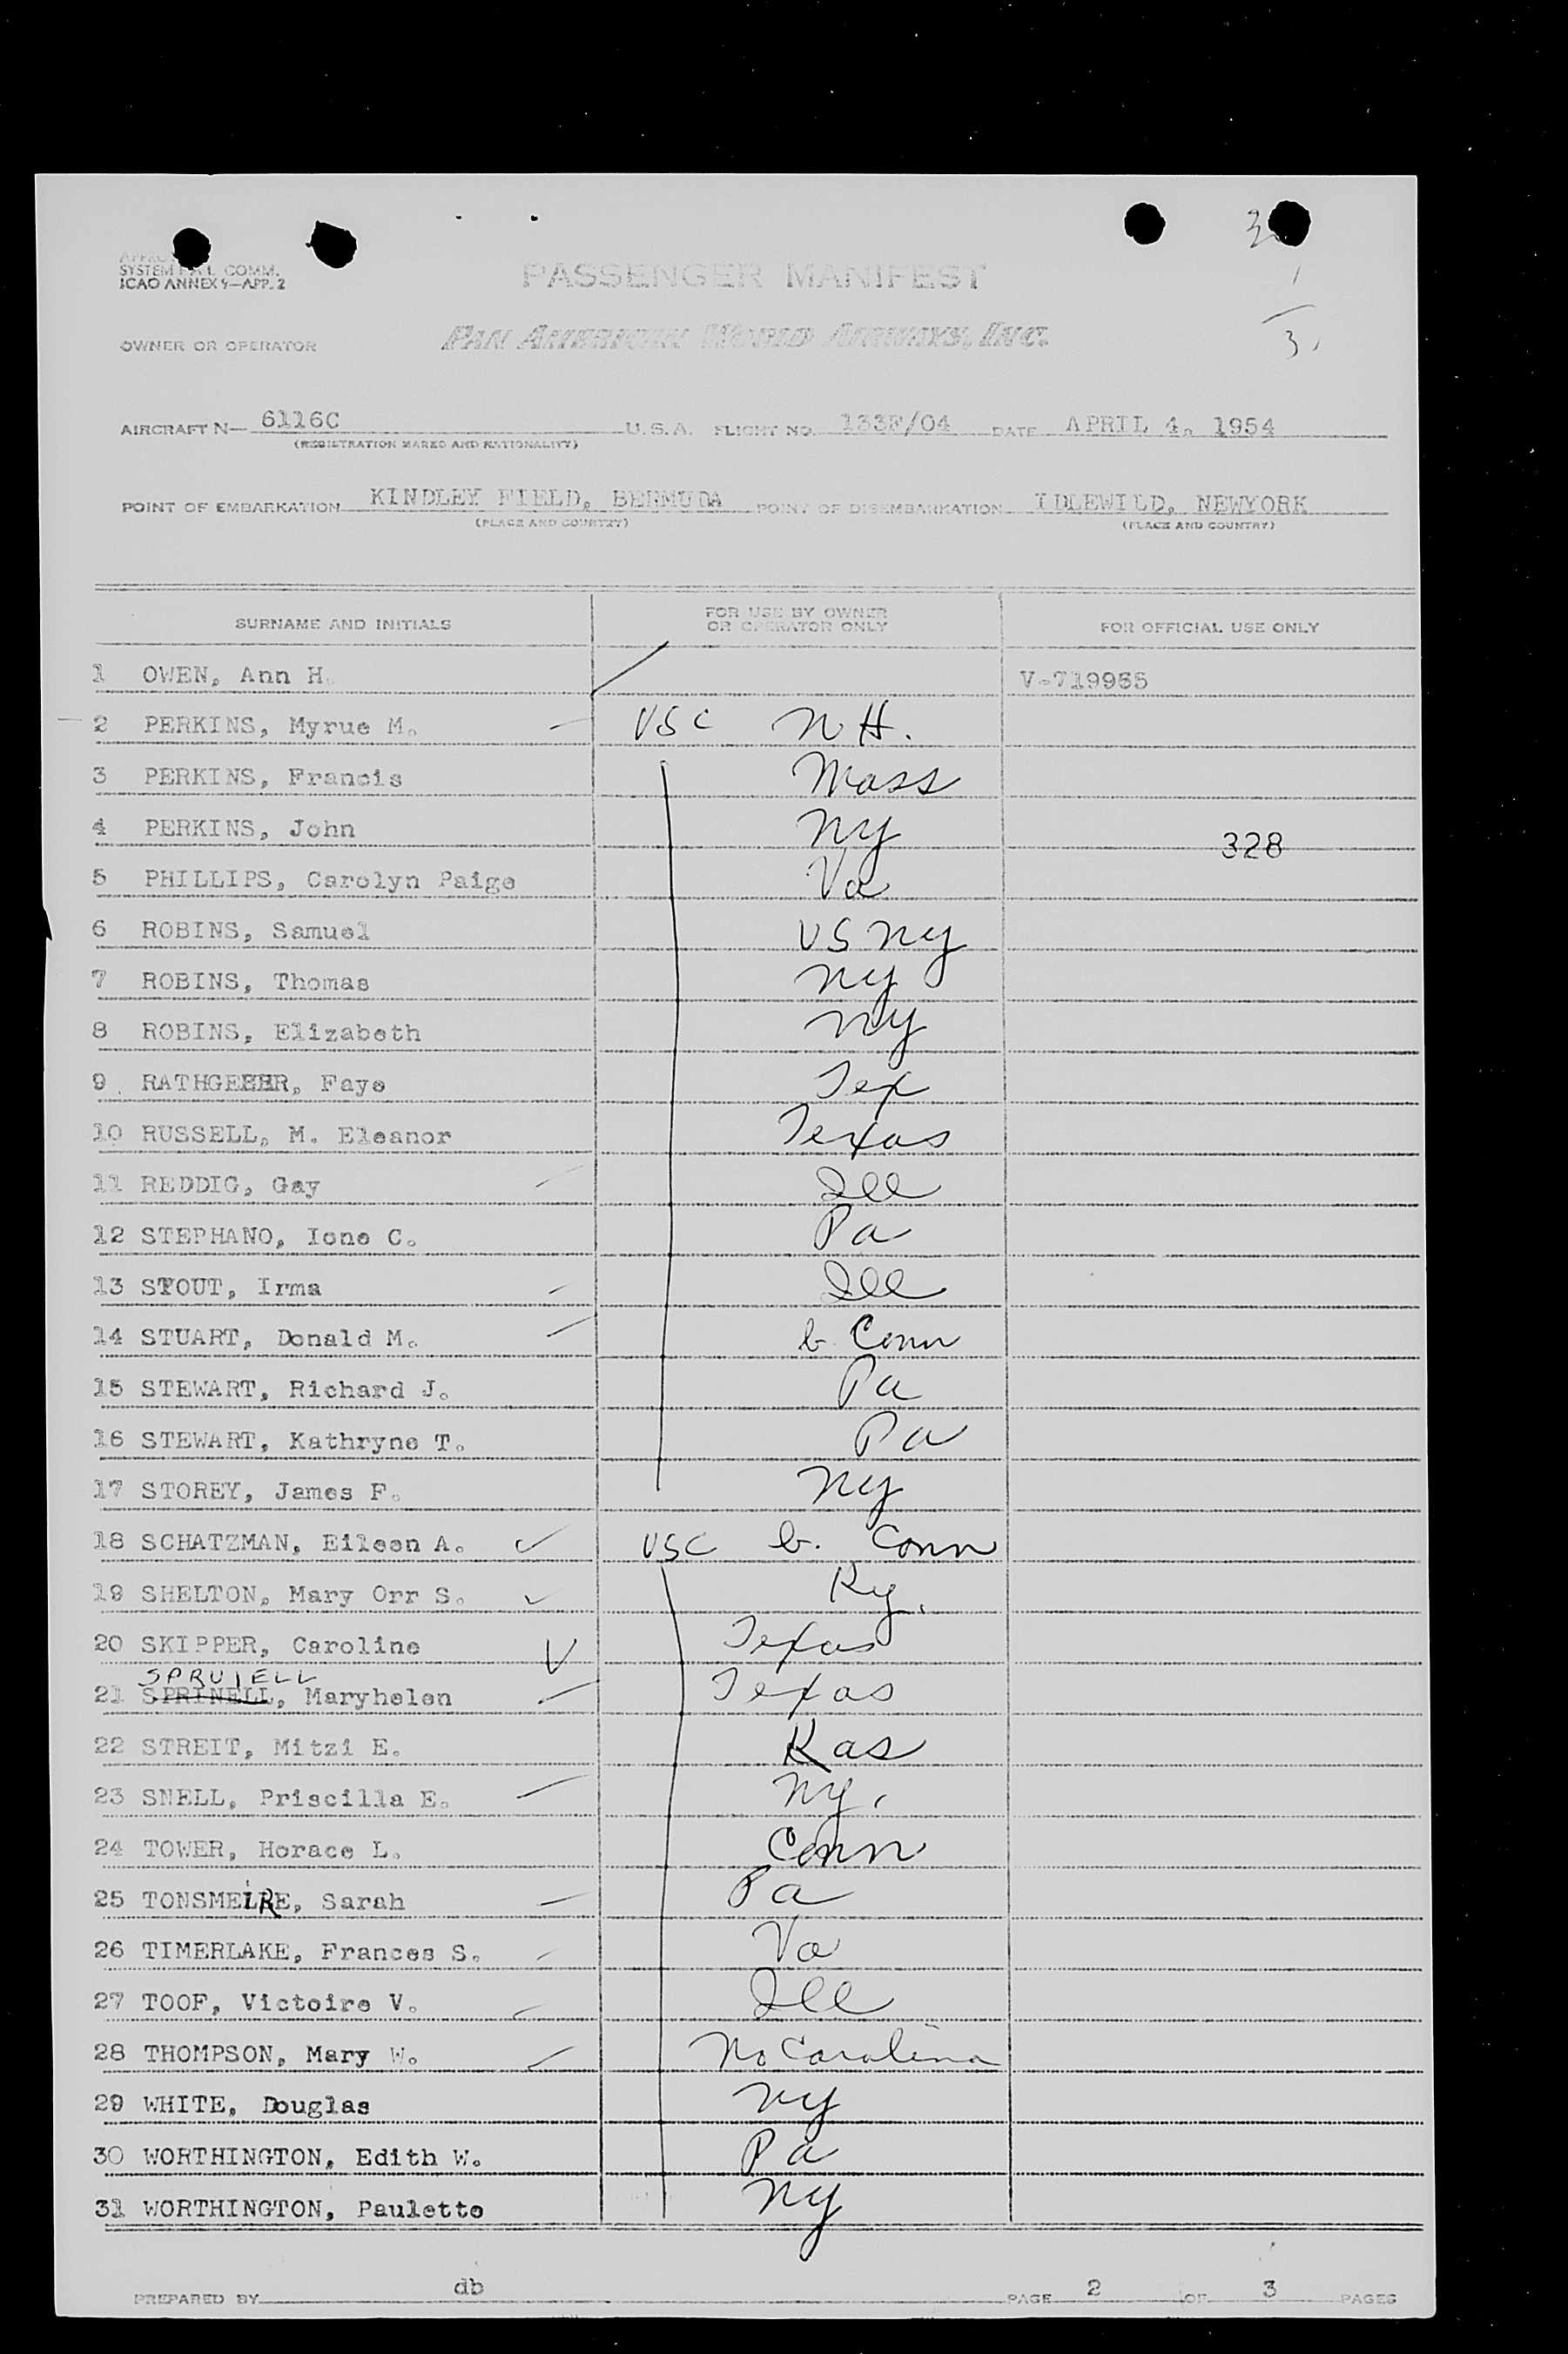 3
SYSTEM COMM.
ICAO ANNEX 9—APP. 2
PASSENGER MANIFEST
1
OWNER OR OPERATOR PAN AMERICAN WORLD AIRWAYS, INC.
3
AIRCRAFT N— 6116C U. S. A. FLIGHT NO. 133F/04 DATE APRIL 4, 1954
(REGISTRATION MARKS AND NATIONALITY)
POINT OF EMBARKATION KINDLEY FIELD, BERMUDA POINT OF DISEMBARKATION IDLEWILD, NEWYORK
(PLACE AND COUNTRY) (PLACE AND COUNTRY)
SURNAME AND INITIALS FOR USE BY OWNER OR OPERATOR ONLY FOR OFFICIAL USE ONLY
1 OWEN, Ann H. V-719955
2 PERKINS, Myrue M. USC N H.
3 PERKINS, Francis Mass
4 PERKINS, John NY 328
5 PHILLIPS, Carolyn Paige Va
6 ROBINS, Samuel US NY
7 ROBINS, Thomas NY
8 ROBINS, Elizabeth NY
9 Faye Tex
10 RUSSELL, M. Eleanor Texas
11 REDDIG, Gay Ill
12 STEPHANO, Ione C. Pa
13 STOUT, Irma Ill
14 STUART, Donald M. b. Conn
15 STEWART, Richard J. Pa
16 STEWART, Kathryne T. Pa
17 STOREY, James F. NY
18 SCHATZMAN, Eileen A. USC b. Conn
19 SHELTON, Mary Orr S. Ky.
20 SKIPPER, Caroline Texas
SPRUIELL
21 SPRINELL, Maryhelen Texas
22 STREIT, Mitzi E. Kas
23 SNELL, Priscilla E. NY.
24 TOWER, Horace L. Conn
25 TONSMEIRE, Sarah Pa
26 TIMERLAKE, Frances S. Va
27 TOOF, Victoire V. Ill
28 THOMPSON, Mary W. No Carolina
29 WHITE, Douglas NY
30 WORTHINGTON, Edith W. Pa
31 WORTHINGTON, Paulette NY
PREPARED BY db PAGE 2 OF 3 PAGES